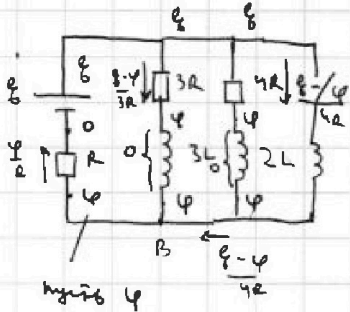 ξ ξ
ξ ξ
ξ-φ/3R 3R 4R ξ-φ/4R
0 φ φ
φ/R R 0 3L 0 2L
φ φ φ
B ξ-φ/4R
пусть φ